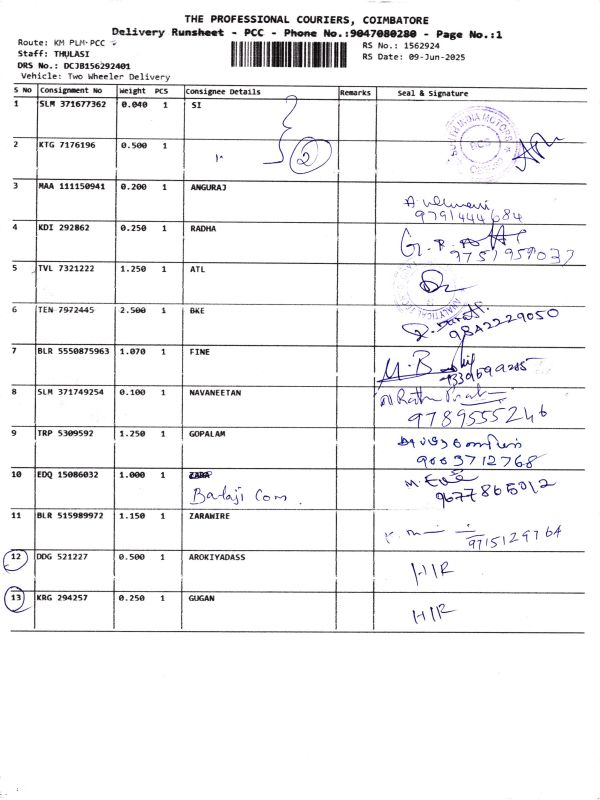 THE PROFESSIONAL COURIERS, COIMBATORE
Delivery Runsheet - PCC - Phone No.:9047080280 - Page No.:1
Route: KM PLM-PCC
RS No.: 1562924
Staff: THULASI
RS Date: 09-Jun-2025
DRS No.: DCJB156292401
Vehicle: Two Wheeler Delivery
S No Consignment No Weight PCS Consignee Details Remarks Seal & Signature
1 SLM 371677362 0.040 1 SI
2 KTG 7176196 0.500 1 2
3 MAA 111150941 0.200 1 ANGURAJ
9791444684
4 KDI 292862 0.250 1 RADHA
9751959037
5 TVL 7321222 1.250 1 ATL
6 TEN 7972445 2.500 1 BKE
9842229050
7 BLR 5550875963 1.070 1 FINE
8 SLM 371749254 0.100 1 NAVANEETAN
9789555246
9 TRP 5309592 1.250 1 GOPALAM
9003712768
10 EDQ 15086032 1.000 1 ZARA
Balaji Com.
9677865012
11 BLR 515989972 1.150 1 ZARAWIRE
9715129764
12 DDG 521227 0.500 1 AROKIYADASS H/R
13 KRG 294257 0.250 1 GUGAN H/R